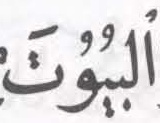 ٱلبُيُوتَ